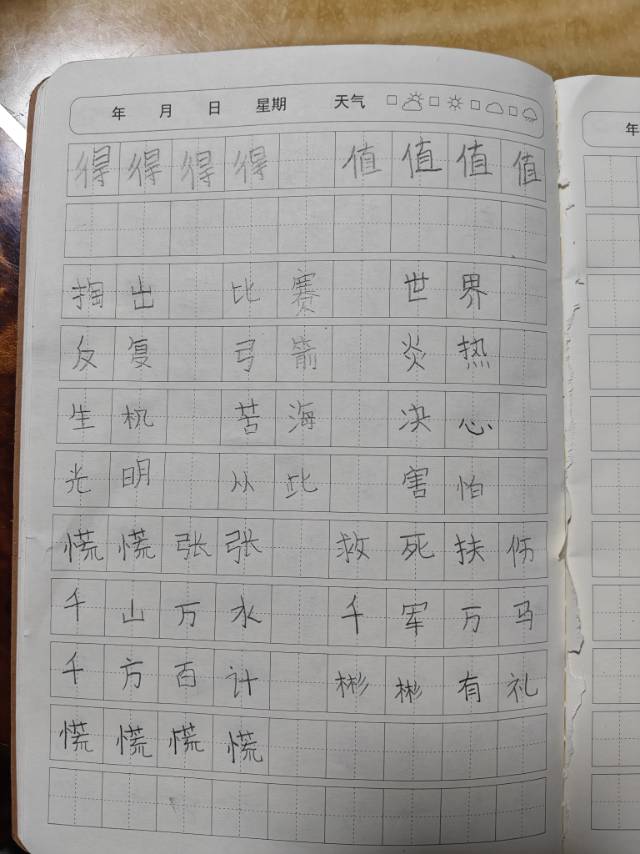 年 月 日 星期 天气
得 得 得 得 值 值 值 值
掏 出 比 赛 世 界
反 复 弓 箭 炎 热
生 机 苦 海 决 心
光 明 从 此 害 怕
慌 慌 张 张 救 死 扶 伤
千 山 万 水 千 军 万 马
千 方 百 计 彬 彬 有 礼
慌 慌 慌 慌
年